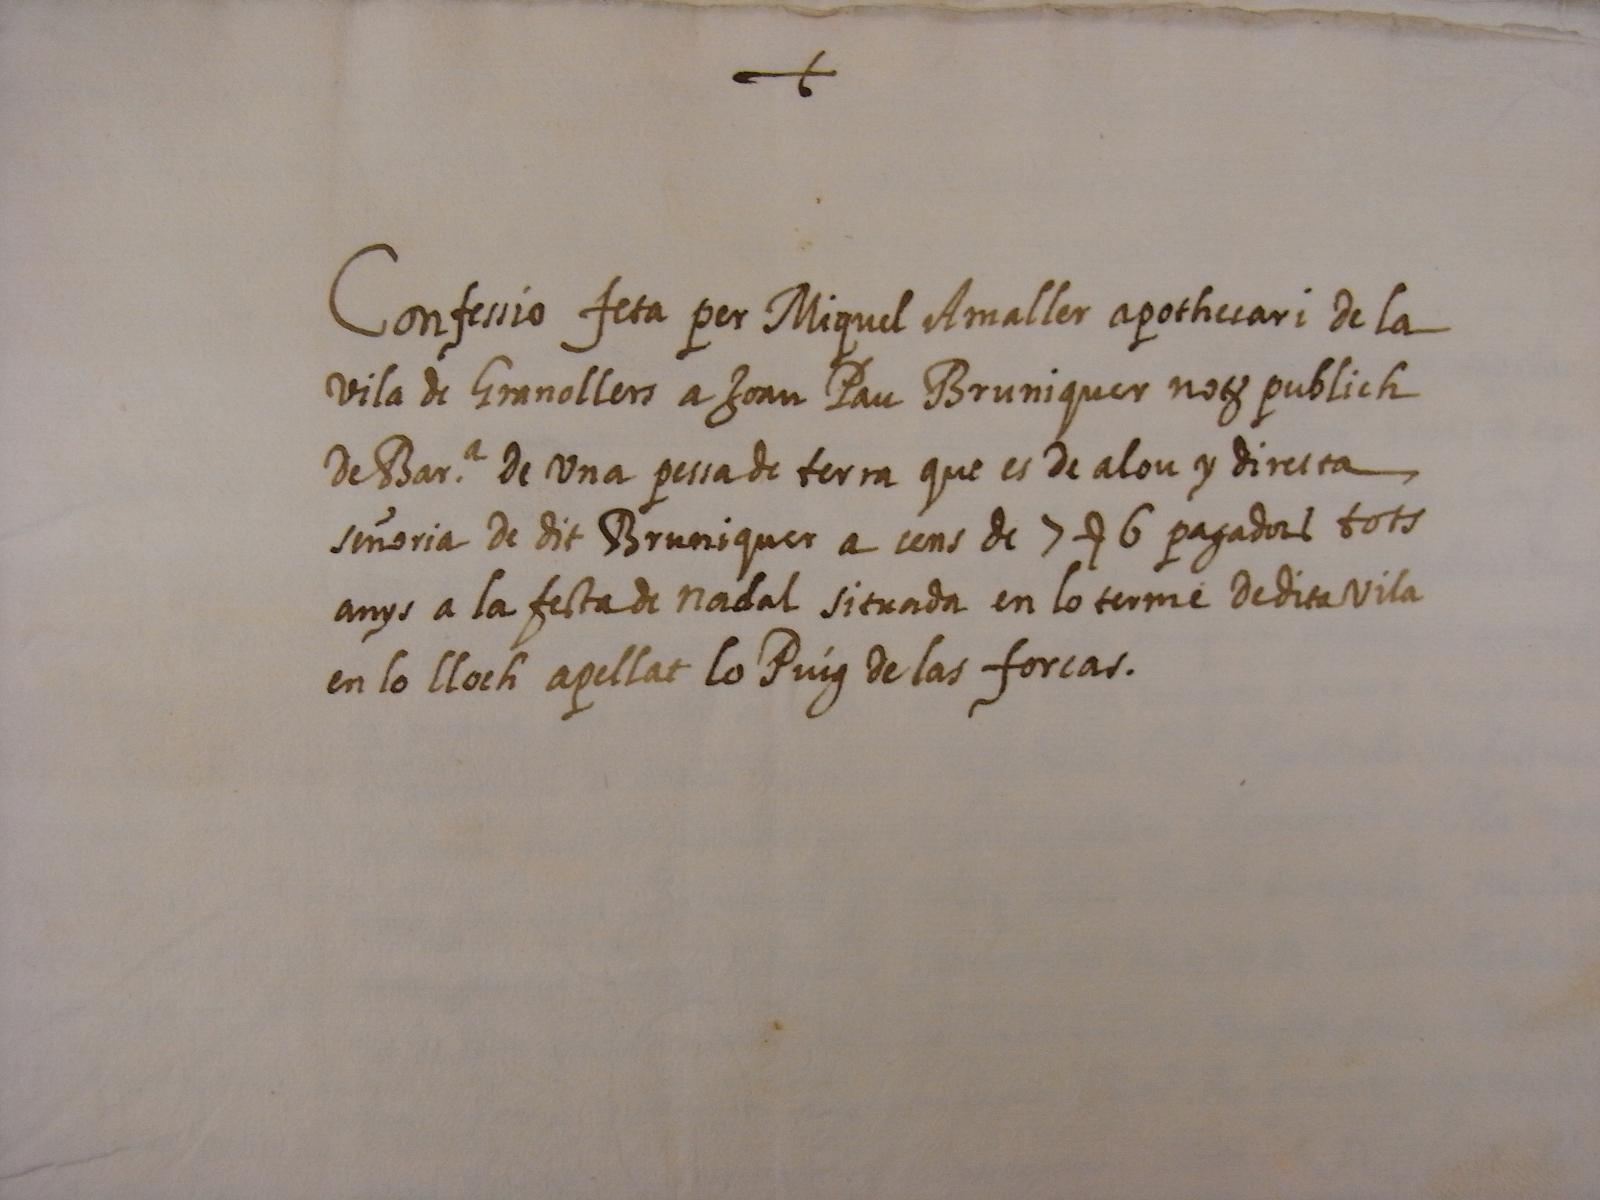 Confessio feta per Miquel Amaller apothecari de la
vila de Granollers a Joan Pau Bruniquer notȝ publich
de Bar.ª de una pessa de terra que es de alou y directa
señoria de dit Bruniquer a cens de 7 6 pagadors tots
anys a la festa de Nadal situada en lo terme de dita vila
en lo lloch apellat lo Puig de las forcas.